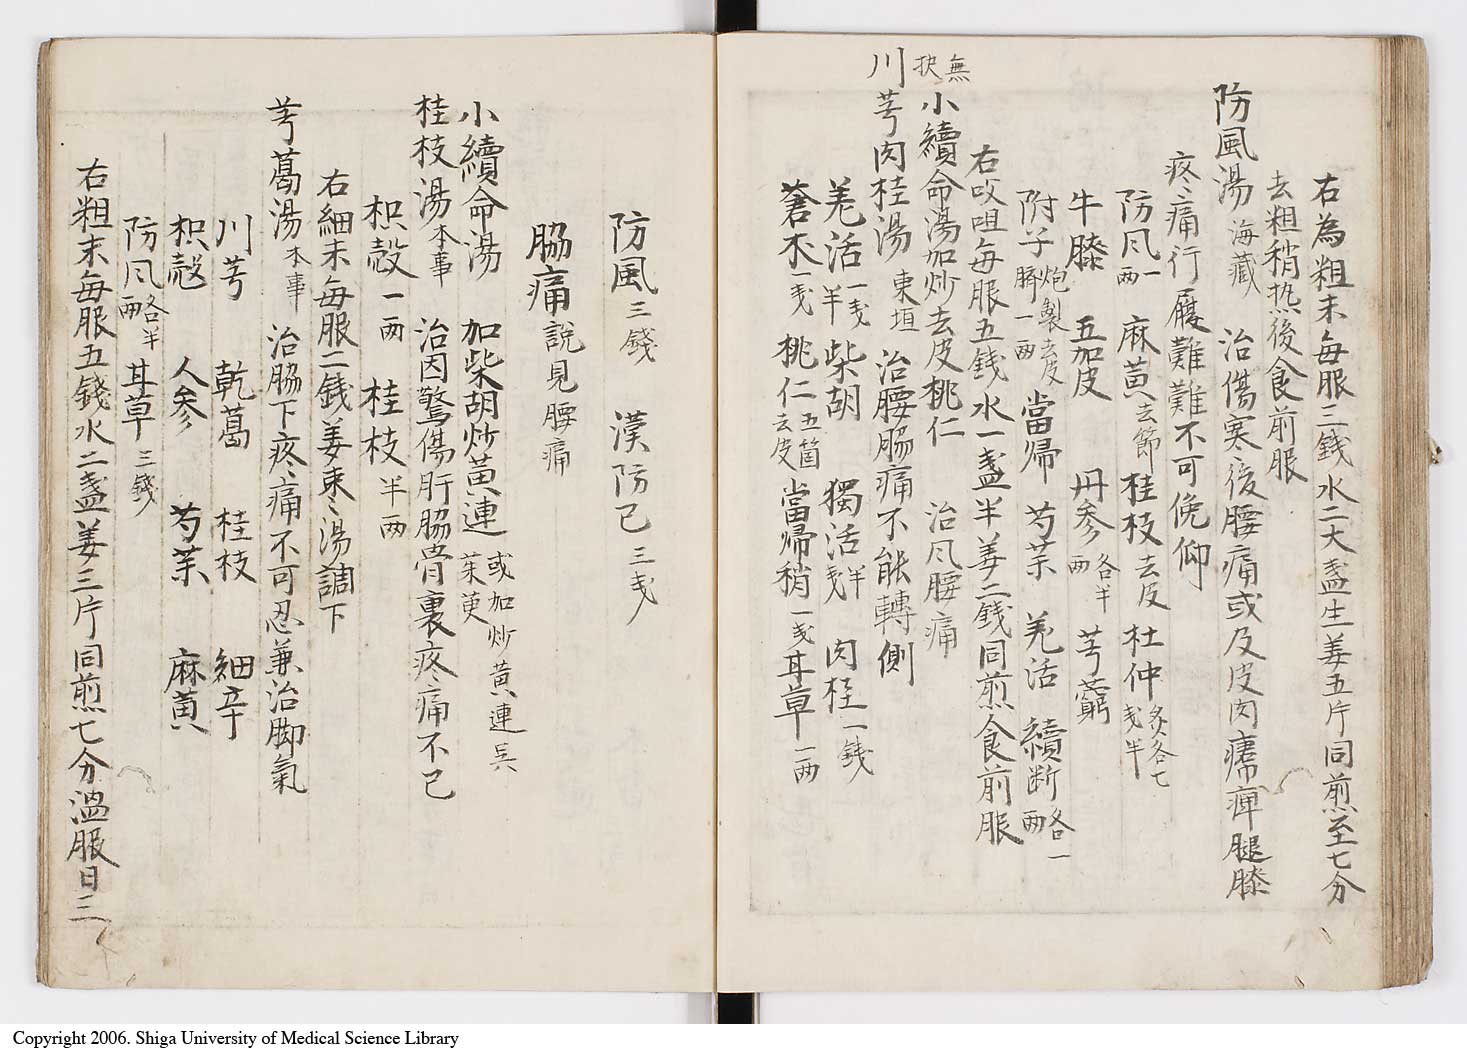 右為粗末每服三錢水二大盞生姜五片同煎至七分
去粗稍热後食前服
防風湯 海藏 治傷寒後腰痛或及皮肉痹腿膝
疼痛行履難難不可俛仰
防风一兩 麻黃去節 桂枝去皮 杜仲炙各七戋半
牛膝 五加皮 丹參各半兩 芎藭
附子炮製去皮臍一兩 當歸 芍茱 羌活 續断各一兩
右㕮咀每服五錢水一盞半姜二錢同煎食前服
無抉
小續命湯加炒去皮桃仁 治风腰痛
川芎肉桂湯 東垣 治腰脇痛不能轉側
羌活一戋半 柴胡 獨活半戋 肉桂一錢
蒼朩一戋 桃仁五箇去皮 當歸稍一戋 耳草一兩
防風三錢 漢防已三戋
脇痛說見腰痛
小續命湯 加柴胡炒黃連或加炒黃連吳茱萸
桂枝湯本事 治因驚傷肝脇骨裏疼痛不已
枳殼一兩 桂枝半兩
右細末每服二錢姜棗湯調下
芎葛湯本事 治脇下疼痛不可忍兼治脚氣
川芎 乾葛 桂枝 細辛
枳殼 人參 芍茱 麻黄
防风各半兩 耳草三錢
右粗末每服五錢水二盞姜三片同煎七分温服日三
Copyright 2006. Shiga University of Medical Science Library